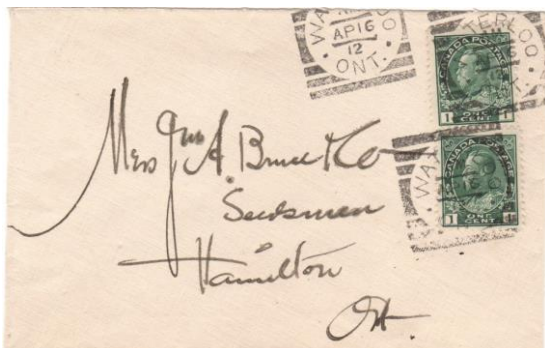 WATERLOO
AP 16
12
ONT.
CANADA POSTAGE
1 ONE CENT 1
WAT
CANADA POSTAGE
1 1
Mess Jno A. Bruce & Co
Seedsmen
Hamilton
Ont.